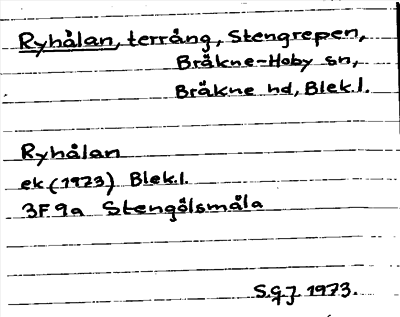 Ryhålan, terräng, Stengrepen,
Bräkne-Hoby sn,
Bräkne hd, Blek.l.
Ryhålan
ek (1973) Blek.l.
3F 9a Stengölsmåla
S.G.J. 1973.